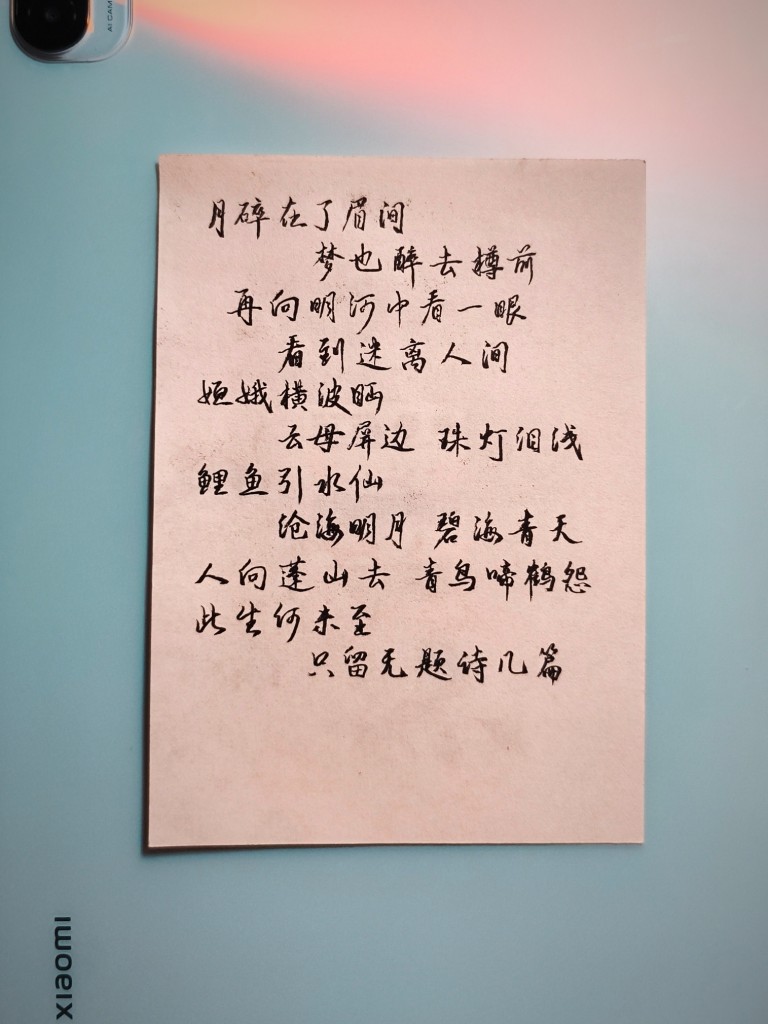 AI CAM
月碎在了眉间
梦也醉去樽前
再向明河中看一眼
看到迷离人间
姮娥横波眄
云母屏边 珠灯泪浅
鲤鱼引水仙
沧海明月 碧海青天
人向蓬山去 青鸟啼鹤怨
此生何未至
只留无题诗几篇
xiaomi